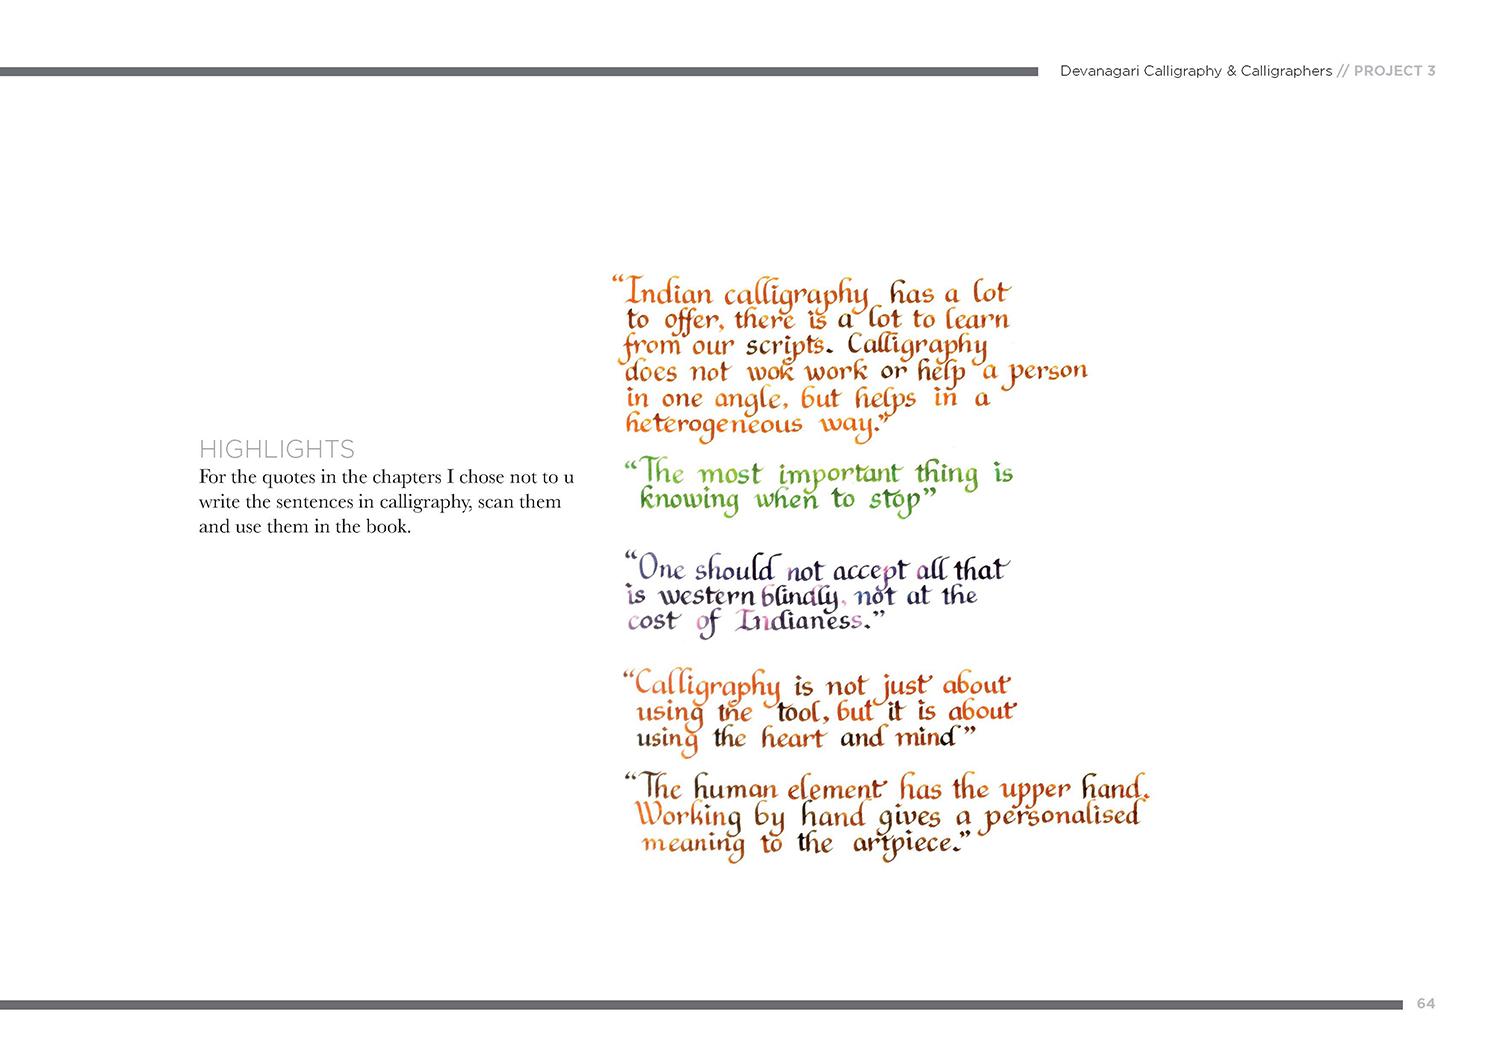 Devanagari Calligraphy & Calligraphers // PROJECT 3
HIGHLIGHTS
For the quotes in the chapters I chose not to u
write the sentences in calligraphy, scan them
and use them in the book.
“Indian calligraphy has a lot
to offer, there is a lot to learn
from our scripts. Calligraphy
does not wok work or help a person
in one angle, but helps in a
heterogeneous way.”
“The most important thing is
knowing when to stop”
“One should not accept all that
is western blindly, not at the
cost of Indianess.”
“Calligraphy is not just about
using the tool, but it is about
using the heart and mind”
“The human element has the upper hand.
Working by hand gives a personalised
meaning to the artpiece.”
64